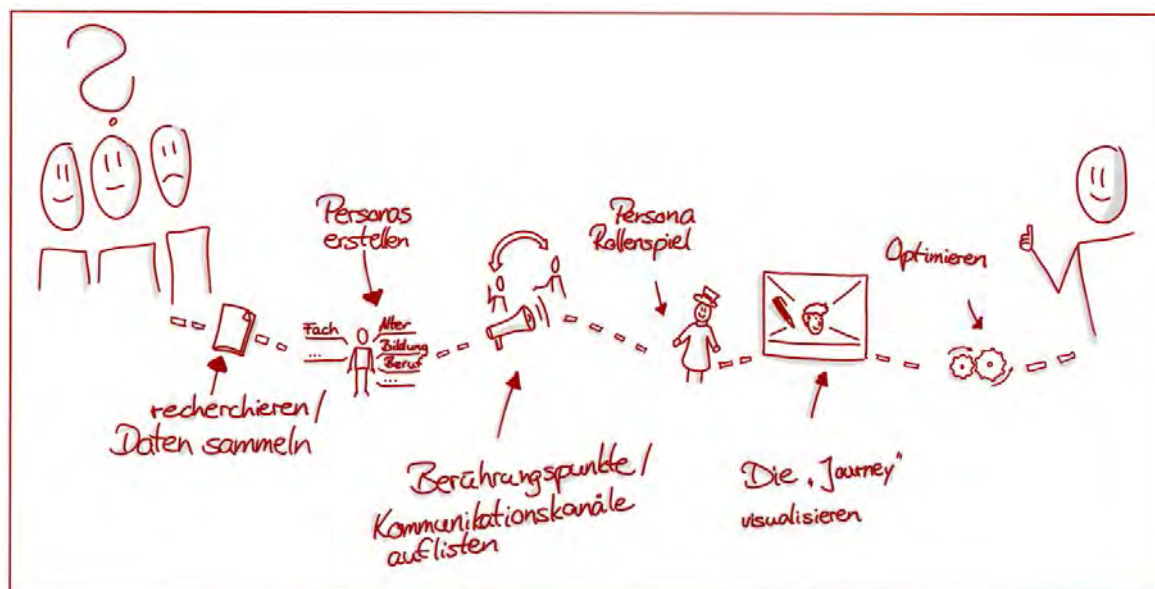 ?
recherchieren/
Daten sammeln
Personas
erstellen
Fach
...
Alter
Bildung
Beruf
...
Berührungspunkte/
Kommunikationskanäle
auflisten
Persona
Rollenspiel
Die „Journey"
visualisieren
Optimieren